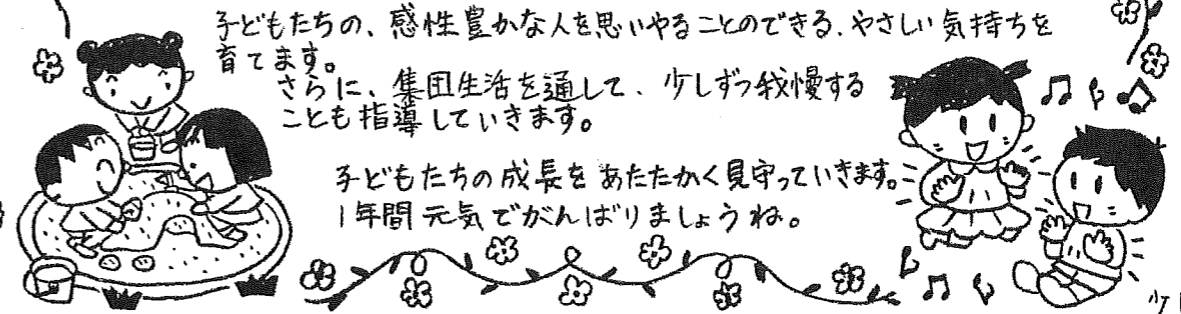 子どもたちの、感性豊かな人を思いやることのできる、やさしい気持ちを
育てます。
さらに、集団生活を通して、少しずつ我慢する
ことも指導していきます。
子どもたちの成長をあたたかく見守っていきます。
1年間元気でがんばりましょうね。